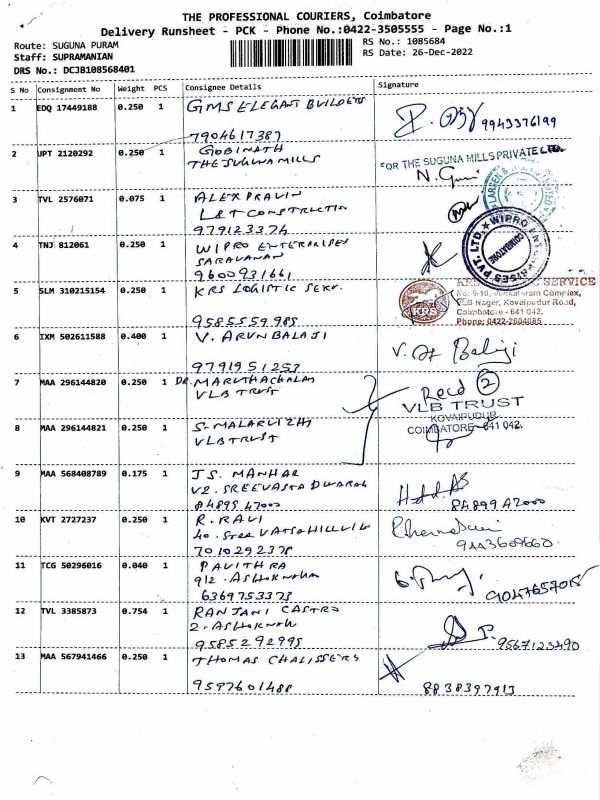 THE PROFESSIONAL COURIERS, Coimbatore
Delivery Runsheet - PCK - Phone No.:0422-3505555 - Page No.:1
Route: SUGUNA PURAM
Staff: SUPRAMANIAN
DRS No.: DCJB108568401
RS No.: 1085684
RS Date: 26-Dec-2022
S No Consignment No Weight PCS Consignee Details Signature
1 EDQ 17449188 0.250 1 GMS ELEGANT BUILDERS
7904617387
9943376199
2 UPT 2120292 0.250 1 GOBINATH
THE SUGUNA MILLS
FOR THE SUGUNA MILLS PRIVATE LTD.
3 TVL 2576071 0.075 1 ALEX PRAVIN
L&T CONSTRUCTION
979123374
4 TNJ 812061 0.250 1 WIPRO ENTERPRISES
SARAVANAN
9600931661
WIPRO ENTERPRISES PVT. LTD.
COIMBATORE
5 SLM 310215154 0.250 1 KRS LOGISTIC SERV.
9585559985
KRS
SERVICE
No: 9/10, Venkatram Complex,
VLB Nager, Kovaipudur Road,
Coimbatore - 641 042.
Phone: 0422-2604085
6 IXM 502611588 0.400 1 V. ARUN BALAJI
9791951253
7 MAA 296144820 0.250 1 DR. MARUTHACHALAM
VLB TRUST
Recd 2
VLB TRUST
KOVAIPUDUR
COIMBATORE-641 042.
8 MAA 296144821 0.250 1 S. MALARVIZHI
VLB TRUST
9 MAA 568408789 0.175 1 J S. MANHAR
V2. SREEVASTA DWARAK
84899 47000
84899 47000
10 KVT 2727237 0.250 1 R. RAVI
40. Sree VATSA HILLVIW
7010292378
9443609660
11 TCG 50296016 0.040 1 PAVITHRA
912. ASHOKNAHA
6369753373
9047657015
12 TVL 3385873 0.754 1 RANJANI CASTRO
2. ASHOKNAH
9585292995
9567123390
13 MAA 567941466 0.250 1 THOMAS CHALISSERY
9597601488
8838397913